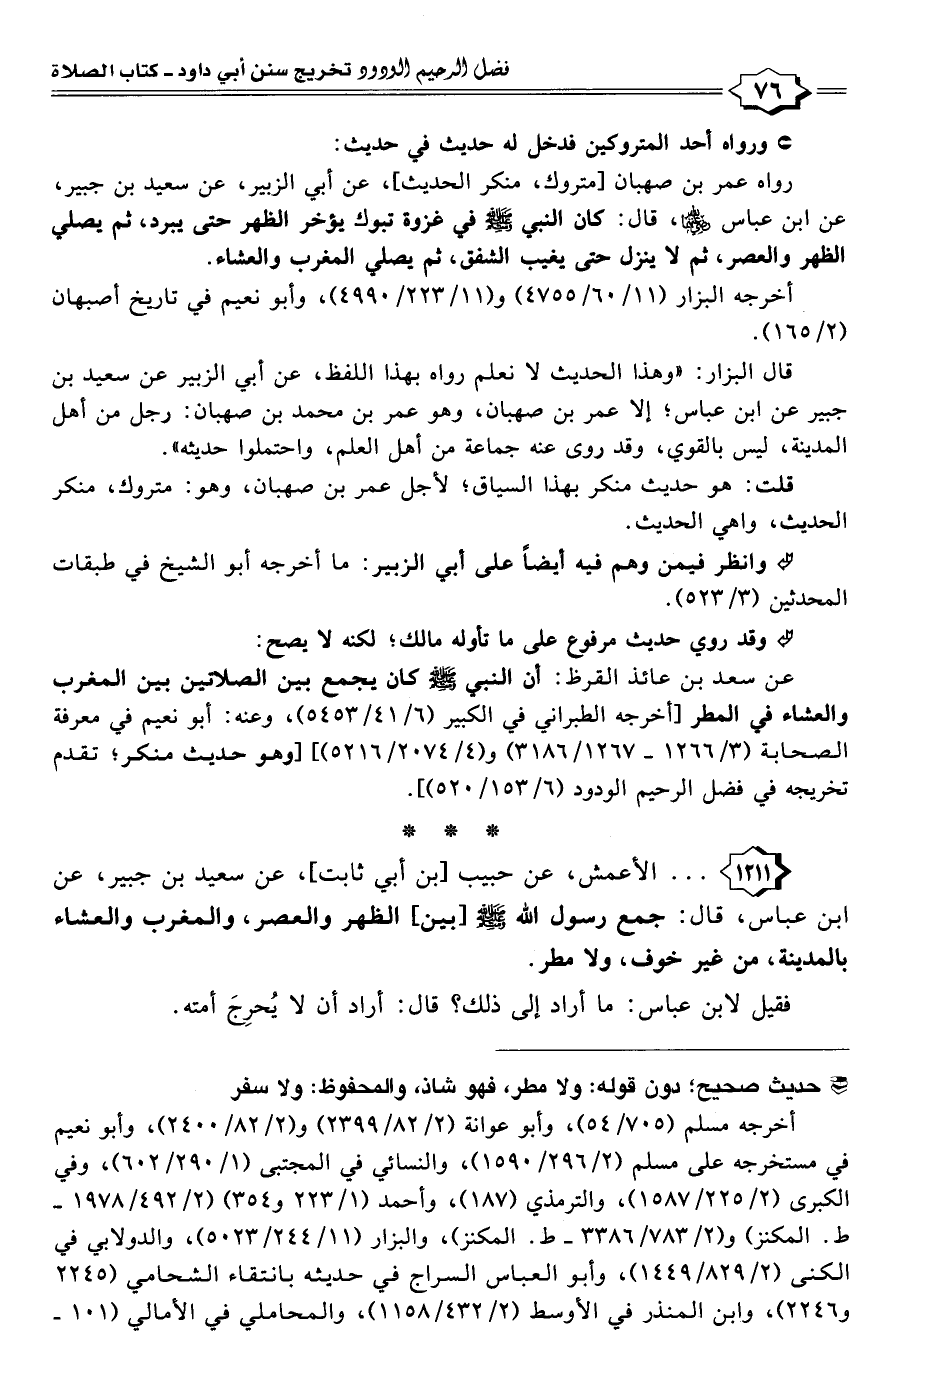 فضل الرحيم الودود تخريج سنن أبي داود - كتاب الصلاة
٧٦
ورواه أحد المتروكين فدخل له حديث في حديث:
رواه عمر بن صهبان [متروك، منكر الحديث]، عن أبي الزبير، عن سعيد بن جبير،
عن ابن عباس ﵄، قال: كان النبي ﷺ في غزوة تبوك يؤخر الظهر حتى يبرد، ثم يصلي
الظهر والعصر، ثم لا ينزل حتى يغيب الشفق، ثم يصلي المغرب والعشاء.
أخرجه البزار (١١/ ٦٠/ ٤٧٥٥) و(١١/ ٢٢٣/ ٤٩٩٠)، وأبو نعيم في تاريخ أصبهان
(٢/ ١٦٥).
قال البزار: «وهذا الحديث لا نعلم رواه بهذا اللفظ، عن أبي الزبير عن سعيد بن
جبير عن ابن عباس؛ إلا عمر بن صهبان، وهو عمر بن محمد بن صهبان: رجل من أهل
المدينة، ليس بالقوي، وقد روى عنه جماعة من أهل العلم، واحتملوا حديثه».
قلت: هو حديث منكر بهذا السياق؛ لأجل عمر بن صهبان، وهو: متروك، منكر
الحديث، واهي الحديث.
وانظر فيمن وهم فيه أيضاً على أبي الزبير: ما أخرجه أبو الشيخ في طبقات
المحدثين (٣/ ٥٢٣).
وقد روي حديث مرفوع على ما تأوله مالك؛ لكنه لا يصح:
عن سعد بن عائذ القرظ: أن النبي ﷺ كان يجمع بين الصلاتين بين المغرب
والعشاء في المطر [أخرجه الطبراني في الكبير (٦/ ٤١/ ٥٤٥٣)، وعنه: أبو نعيم في معرفة
الصحابة (٣/ ١٢٦٦ - ١٢٦٧/ ٣١٨٦) و(٤/ ٢٠٧٤/ ٥٢١٦)] [وهو حديث منكر؛ تقدم
تخريجه في فضل الرحيم الودود (٦/ ١٥٣/ ٥٢٠)].
* * *
١٢١١ ... الأعمش، عن حبيب [بن أبي ثابت]، عن سعيد بن جبير، عن
ابن عباس، قال: جمع رسول الله ﷺ [بين] الظهر والعصر، والمغرب والعشاء
بالمدينة، من غير خوف، ولا مطر.
فقيل لابن عباس: ما أراد إلى ذلك؟ قال: أراد أن لا يُحرِجَ أمته.
حديث صحيح؛ دون قوله: ولا مطر، فهو شاذ، والمحفوظ: ولا سفر
أخرجه مسلم (٧٠٥/ ٥٤)، وأبو عوانة (٢/ ٨٢/ ٢٣٩٩) و(٢/ ٨٢/ ٢٤٠٠)، وأبو نعيم
في مستخرجه على مسلم (٢/ ٢٩٦/ ١٥٩٠)، والنسائي في المجتبى (١/ ٢٩٠/ ٦٠٢)، وفي
الكبرى (٢/ ٢٢٥/ ١٥٨٧)، والترمذي (١٨٧)، وأحمد (١/ ٢٢٣ و٣٥٤) (٢/ ٤٩٢/ ١٩٧٨ -
ط. المكنز) و(٢/ ٧٨٣/ ٣٣٨٦ - ط. المكنز)، والبزار (١١/ ٢٤٤/ ٥٠٢٣)، والدولابي في
الكنى (٢/ ٨٢٩/ ١٤٤٩)، وأبو العباس السراج في حديثه بانتقاء الشحامي (٢٢٤٥
و٢٢٤٦)، وابن المنذر في الأوسط (٢/ ٤٣٢/ ١١٥٨)، والمحاملي في الأمالي (١٠١ -